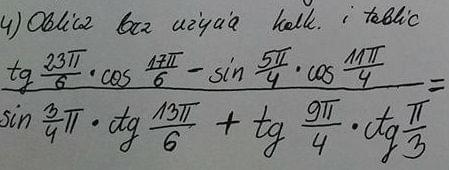 4) Oblicz bez użycia kalk. i tablic
tg 23π/6 · cos 17π/6 - sin 5π/4 · cos 11π/4
sin 3/4 π · ctg 13π/6 + tg 9π/4 · ctg π/3 =